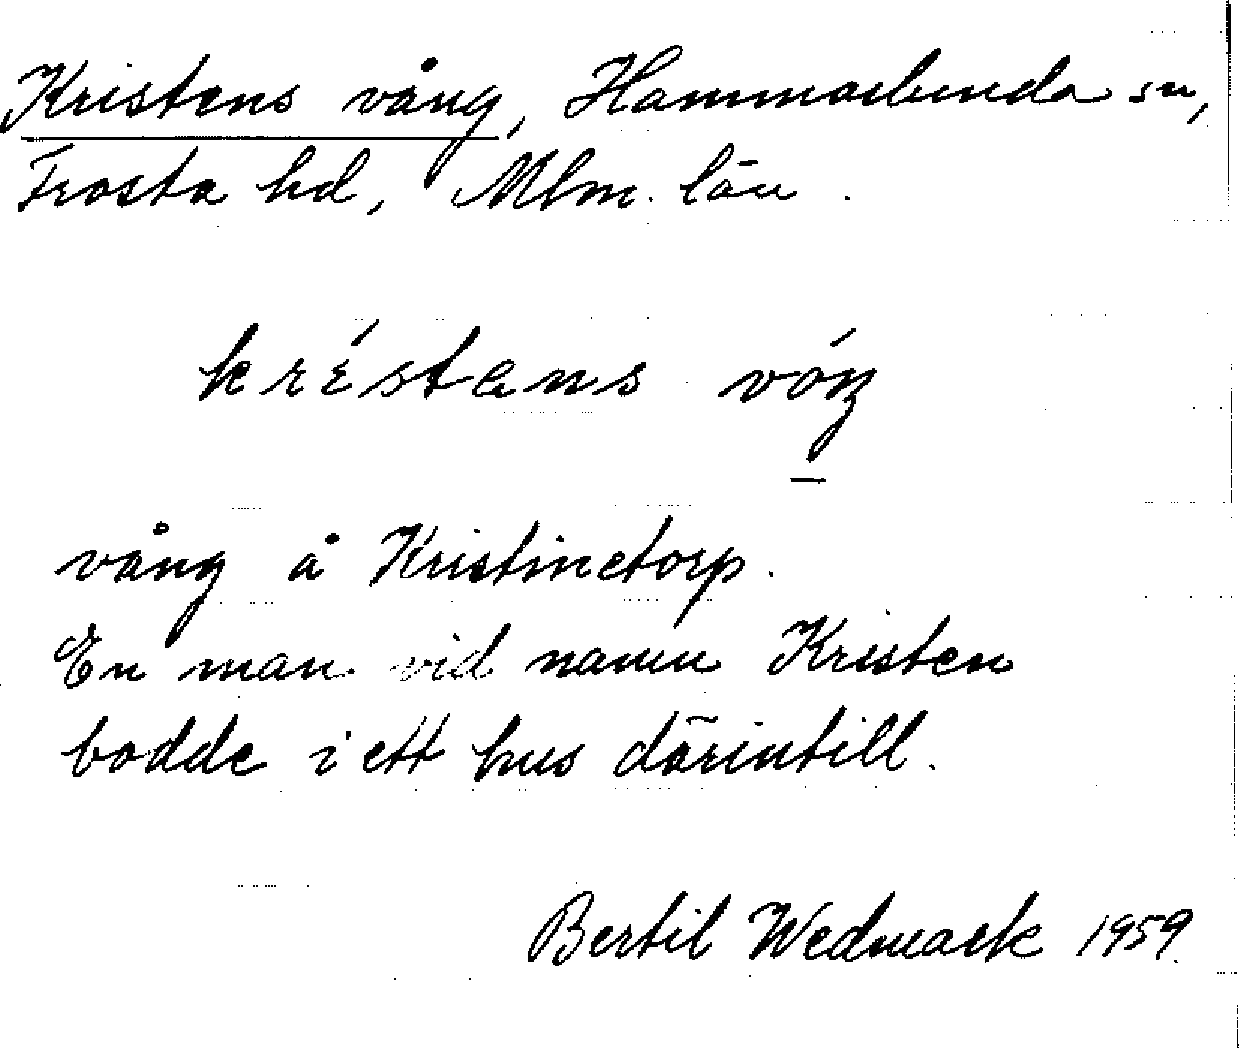 Kristens vång, Hammarlunda sn,
Frosta hd, Mlm. län.
kréstens vóŋ
vång å Kristinetorp.
En man vid namn Kristen
bodde i ett hus därintill.
Bertil Wedmark 1959.